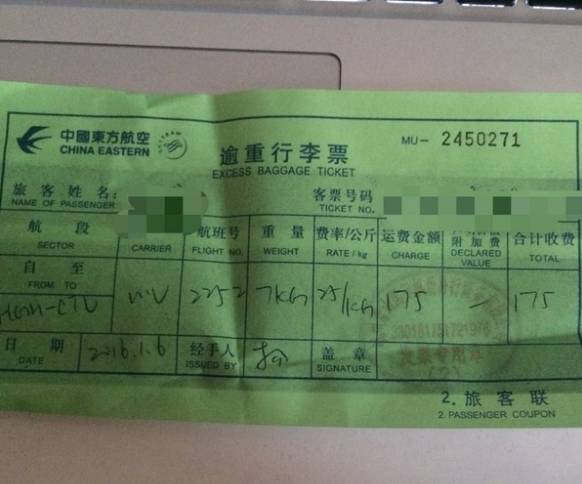 中國東方航空
CHINA EASTERN
逾重行李票
EXCESS BAGGAGE TICKET
MU- 2450271
旅客姓名:
NAME OF PASSENGER
客票号码
TICKET NO.
航段 航班号 重量 费率/公斤 运费金额 附加费 合计收费
SECTOR CARRIER FLIGHT NO. WEIGHT RATE/kg CHARGE DECLARED VALUE TOTAL
自 至
FROM TO
-CTU MU 2252 7KG 25/KG 175 — 175
日期 2016.1.6 经手人 盖章
DATE ISSUED BY SIGNATURE
发票专用章
2. 旅客联
2. PASSENGER COUPON